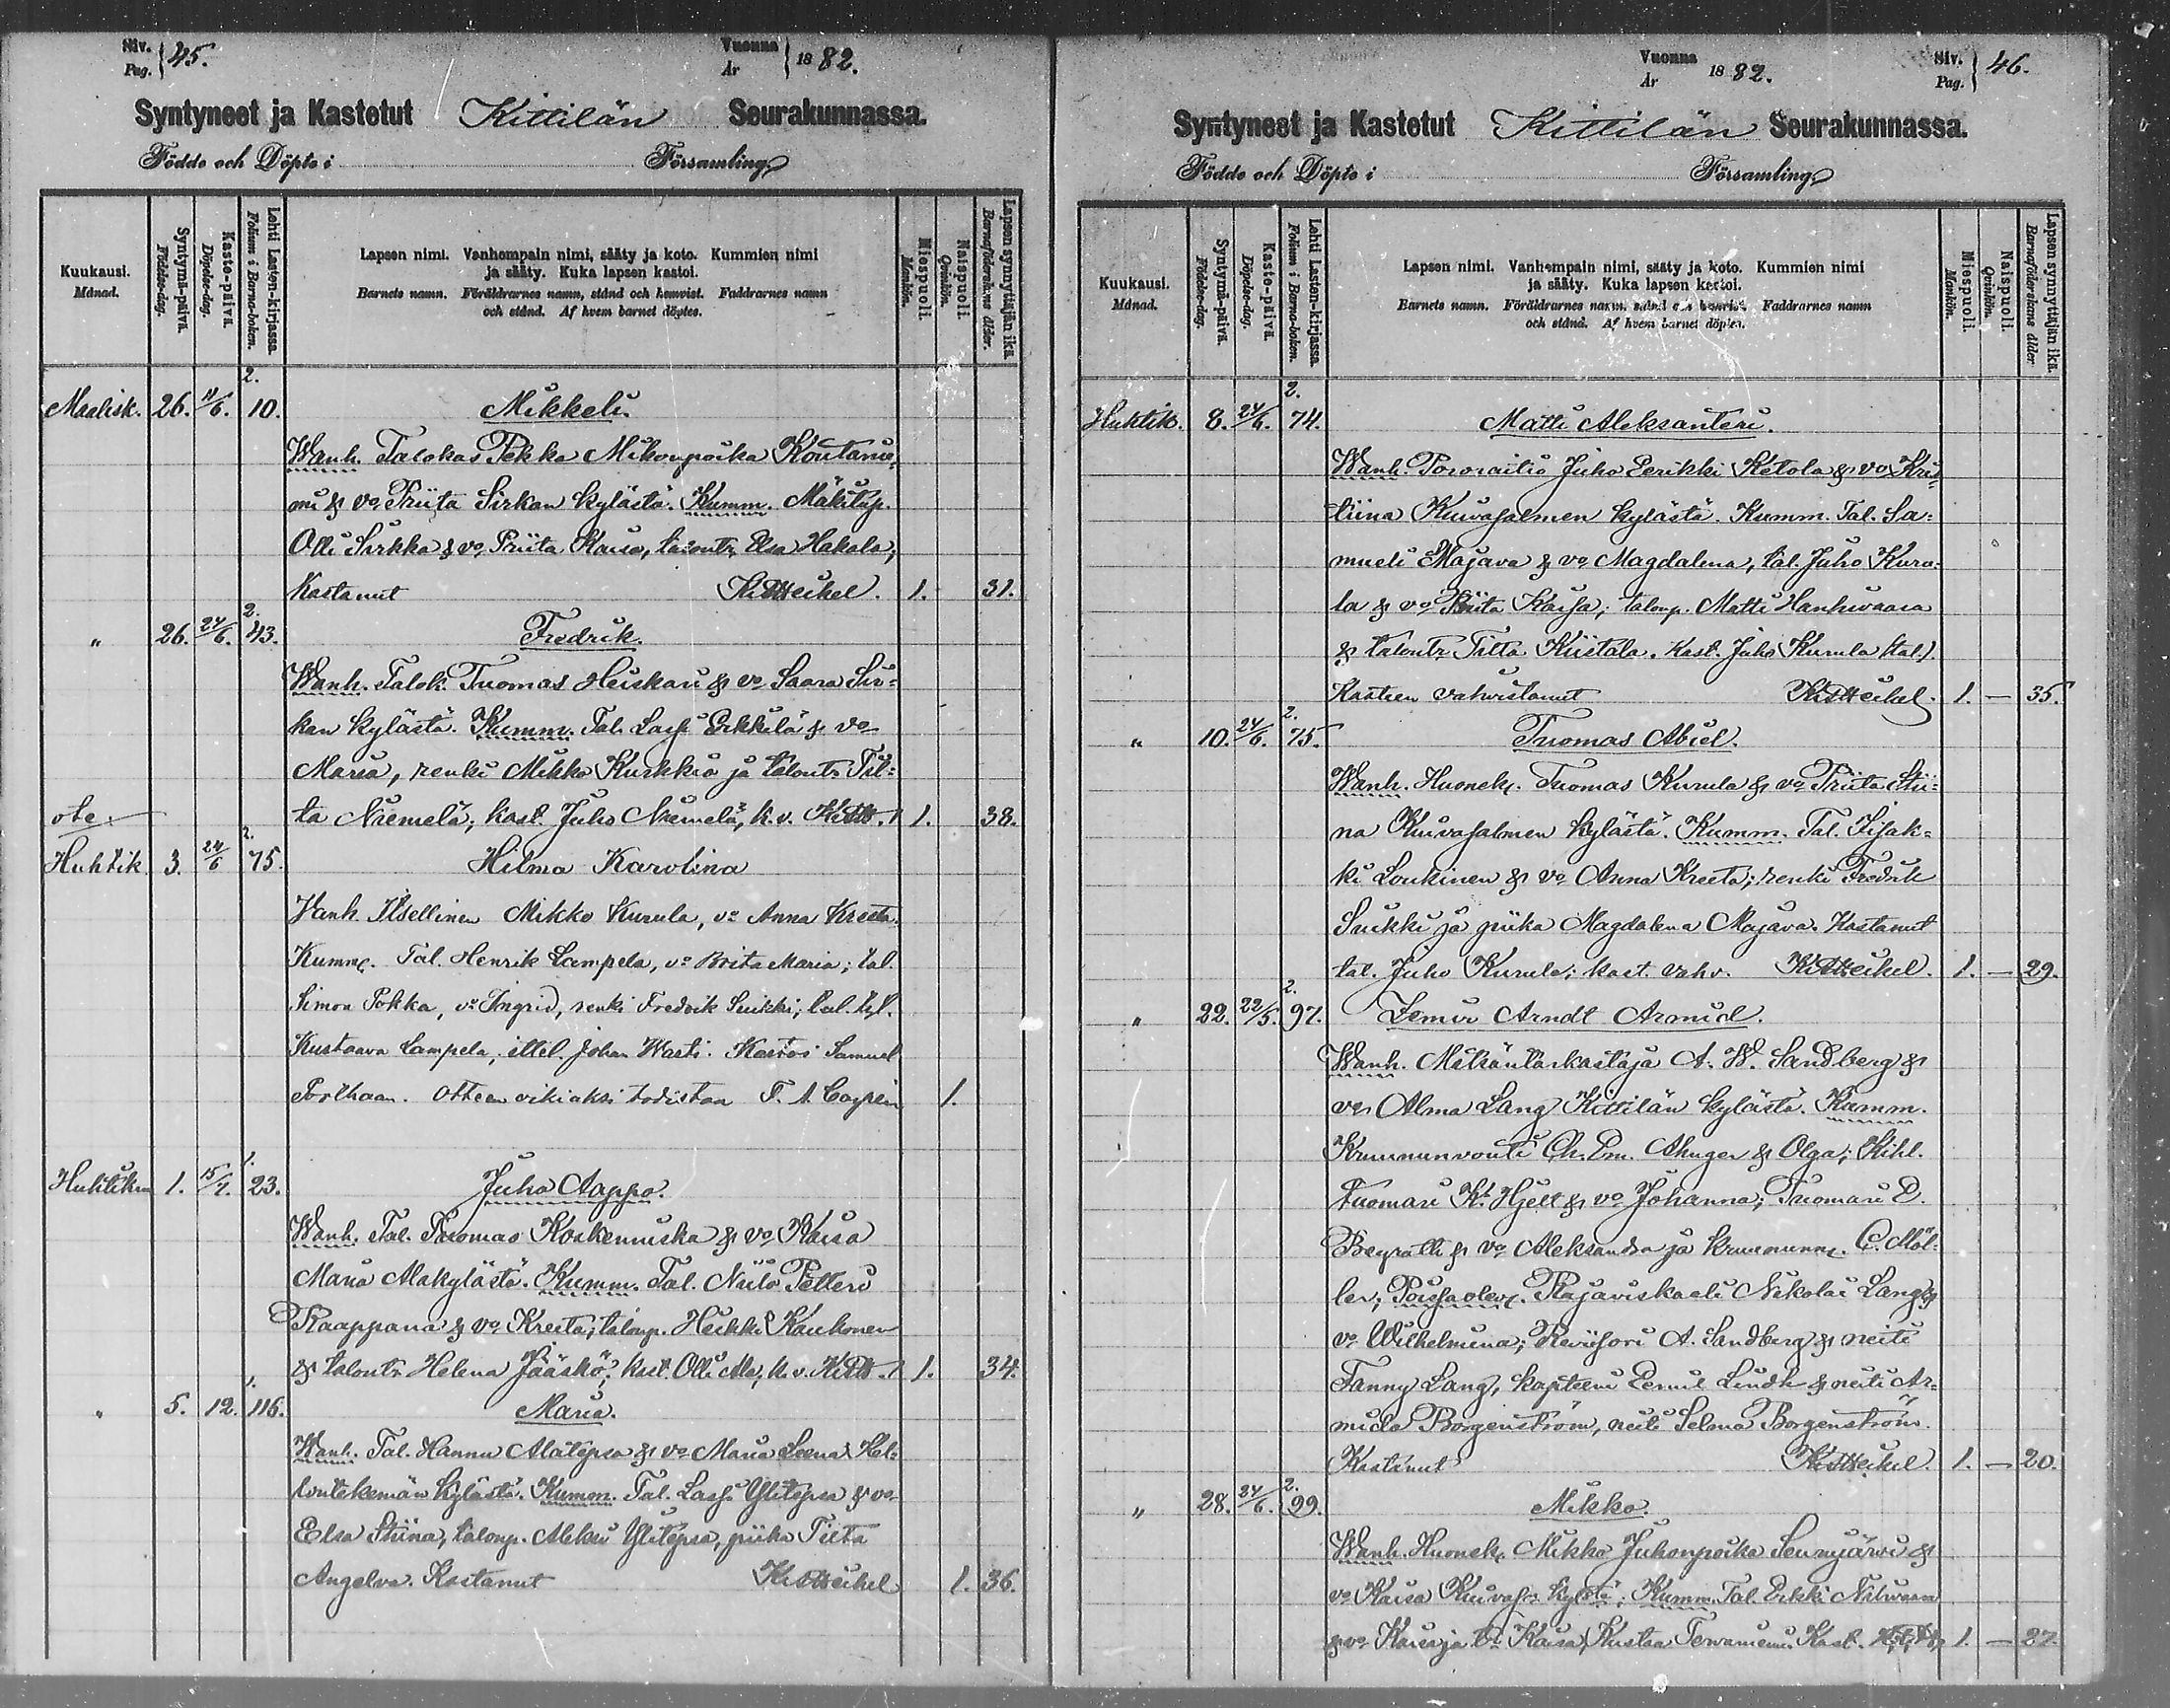 Siv. Pag. 45.
Vuonna År 1882.
Syntyneet ja Kastetut Kittilän Seurakunnassa.
Födde och Döpte i Församling
Kuukausi. Månad.
Syntymä-päivä. Födelse-dag.
Kaste-päivä. Döpelse-dag.
Lehti Lasten-kirjassa. Folium i Barna-boken.
Lapsen nimi. Vanhempain nimi, sääty ja koto. Kummien nimi
ja sääty. Kuka lapsen kastoi.
Barnets namn. Föräldrarnes namn, stånd och hemvist. Faddrarnes namn
och stånd. Af hvem barnet döptes.
Miespuoli. Mankön.
Naispuoli. Qvinkön.
Lapsen synnyttäjän ikä. Barnaföderskans ålder.
2.
Maalisk. 26. 11/6. 10. Mikkeli.
Wanh. Talokas Pekka Mikonpoika Koutanie-
mi & vo Priita Sirkan kylästä. Kumm. Mäkitup.
Olli Sirkka & vo Priita Kaisa, talontr Elsa Hakala;
Kastanut 1. 31.
2.
" 26. 24/6. 43. Fredrik.
Wanh. Talok. Tuomas Heiskari & vo Saara Sir=
kan kylästä. Kumm. Tal. Lassi Erkkilä & vo
Maria, renki Mikko Kurkkio ja talontr Til=
ote. ta Niemelä; kast. Juho Niemelä, k. v. 1. 38.
2.
Huhtik. 3. 24/6 75. Hilma Karolina
Vanh. Itsellinen Mikko Kurula, vo Anna Kreeta.
Kumm. Tal. Henrik Lampela, vo Brita Maria; tal.
Simon Pokka, vo Ingrid, renki Fredrik Suikki; tal. tyt.
Kustaava Lampela, ittel. Johan Wasti. Kastoi Samuel
Porthaan. Otteen oikiaksi todistaa F. A. 1.
1.
Huhtikuu 1. 15/7. 23. Juho Aappo.
Wanh. Tal. Tuomas Koskenniska & vo Kaisa
Maria Alakylästä. Kumm. Tal. Niilo Petteri
Raappana & vo Kreeta; talonp. Heikki Kaukonen
& talontr Helena Jääskö; Kast. Olli Ale, k. v. 1. 34.
1.
" 5. 12. 116. Maria.
Wanh. Tal. Hannu Alatepsa & vo Maria Leena Hel=
lontekemän kylästä. Kumm. Tal. Lassi Ylitepsa & vo
Elsa Stiina, talonp. Aleksi Ylitepsa, piika Tilta
Angelva. Kastanut 1. 36.
Vuonna År 1882.
Siv. Pag. 46.
Syntyneet ja Kastetut Kittilän Seurakunnassa.
Födde och Döpte i Församling
Kuukausi. Månad.
Syntymä-päivä. Födelse-dag.
Kaste-päivä. Döpelse-dag.
Lehti Lasten-kirjassa. Folium i Barna-boken.
Lapsen nimi. Vanhempain nimi, sääty ja koto. Kummien nimi
ja sääty. Kuka lapsen kastoi.
Barnets namn. Föräldrarnes namn, stånd och hemvist. Faddrarnes namn
och stånd. Af hvem barnet döptes.
Miespuoli. Mankön.
Naispuoli. Qvinkön.
Lapsen synnyttäjän ikä. Barnaföderskans ålder
2.
Huhtik. 8. 24/6. 74. Matti Aleksanteri.
Wanh. Pororaitio Juho Eerikki Ketola & vo Kris=
tiina Kuivasalmen kylästä. Kumm. Tal. Sa=
mueli Majava & vo Magdalena, tal. Juho Kuru=
la & vo Priita Kaisa; talonp. Matti Hanhivaara
& talontr Tilta Kiistala. Kast. Juho Kurula (tal.).
Kasteen vahvistanut 1. — 35.
2.
" 10. 24/6. 75. Tuomas Abiel.
Wanh. Huonek. Tuomas Kurula & vo Priita Stii=
na Kuivasalmen kylästä. Kumm. Tal. Iisak=
ki Loukinen & vo Anna Kreeta; renki Fredrik
Suikki ja piika Magdalena Majava. Kastanut
tal. Juho Kurula; kast. vahv. 1. — 29.
2.
" 22. 22/5. 97. Arndt Armid.
Wanh. Metsäntarkastaja A. W. Sandberg &
vo Alma Lang Kittilän kylästä. Kumm.
Kruununvouti Ch. Em. Ahnger & Olga; Kihl.
Tuomari K. Hjelt & vo Johanna; Tuomari E.
& vo Aleksandra ja kruununn. C. Möl=
ler; Poissaolev. Rajaviskaali Nikolai Lang &
vo Wilhelmina; Reviisori A. Sandberg & neiti
Fanny Lang, kapteeni Eemil Lindh & neiti Ar=
mida Borgenström, neiti Selma Borgenström.
Kastanut 1. — 20.
2.
" 28. 24/6. 99. Mikko.
Wanh. Huonek. Mikko Juhonpoika Seurujärvi &
vo Kaisa Kuivas. kylstä; Kumm. Tal. Erkki Nilivaara
& vo Kaisa ja Kaisa, Kustaa Kast. 1. — 27.